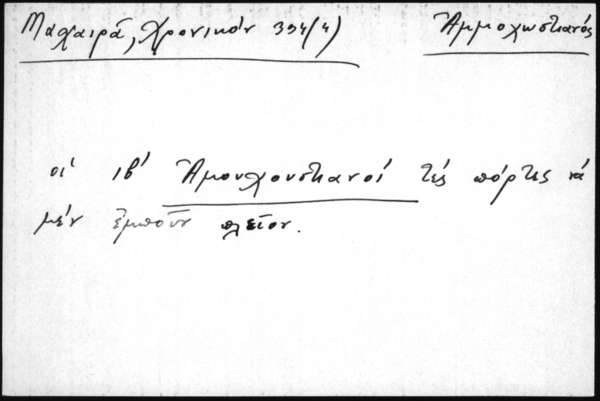 Μαχαιρᾶ, Χρονικόν 394(4)
Ἀμμοχωστιανός
οἱ ιβ΄ Ἀμουχουστιανοί τές πόρτες νά
μέν ἐμποῦν πλεῖον.